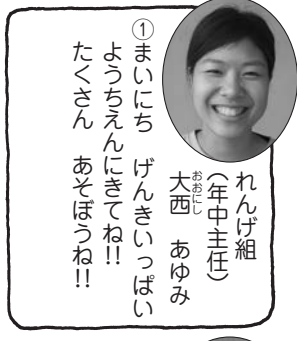 れんげ組
(年中主任)
大西 あゆみ
おおにし
①まいにち げんきいっぱい
ようちえんにきてね!!
たくさん あそぼうね!!